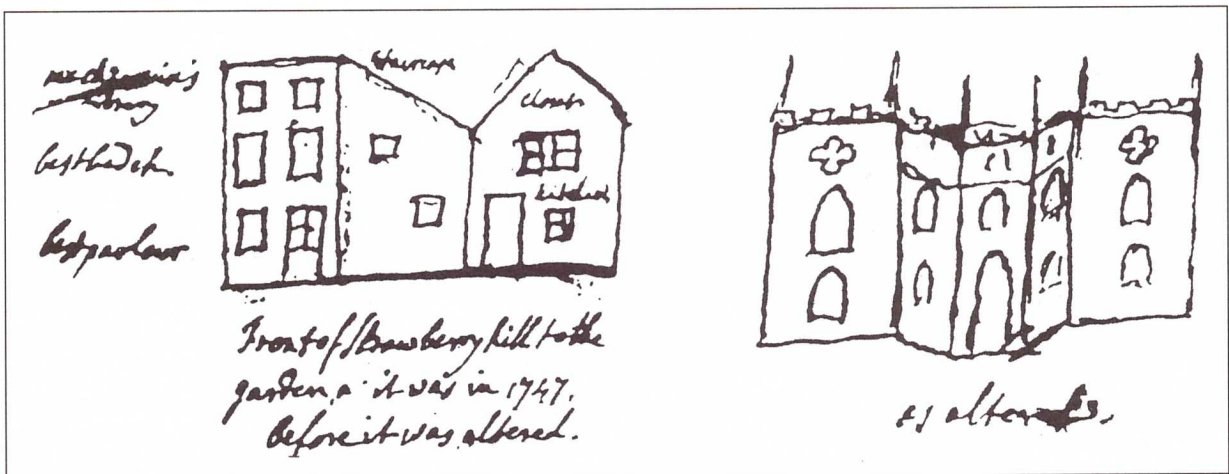 library
best bedch.
best parlour
Staircase
closet
kitchen
Front of Strawberry hill to the
garden as it was in 1747.
before it was altered.
as altered